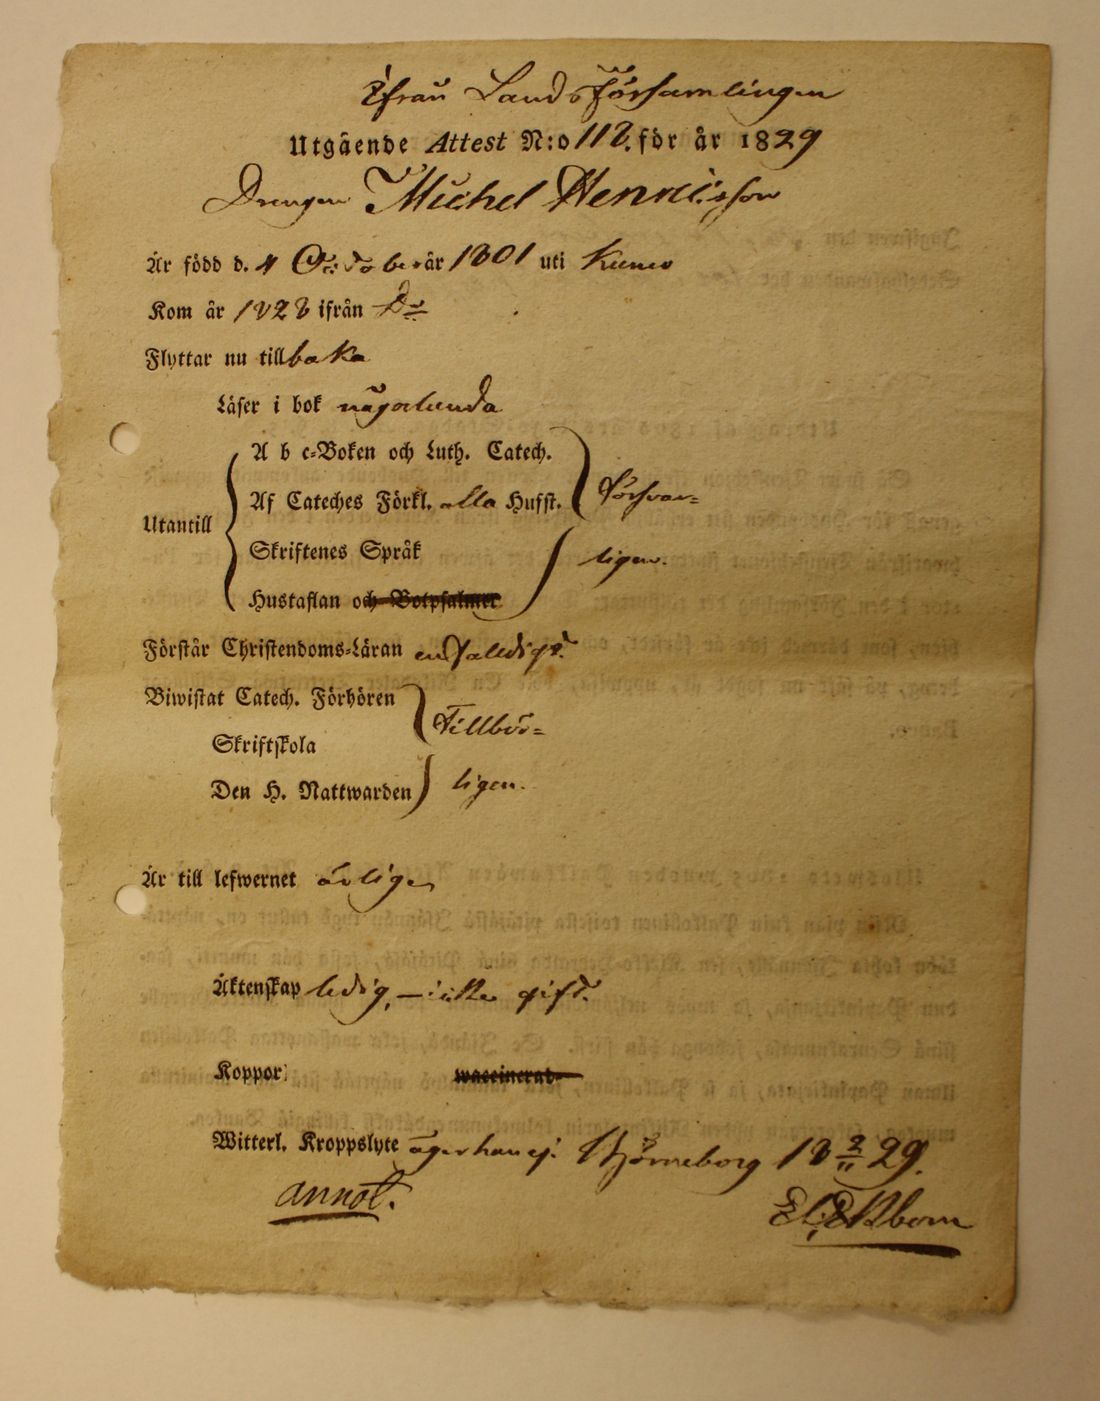 ifrån Landsförsamlingen
Utgående Attest N:o 118. för år 1829
Drengen Michel Henricsson
Är född d. 4 October år 1801 uti Kumo
Kom år 1828 ifrån D:o
Flyttar nu tillbaka
Läser i bok någorlunda
A b c-Boken och Luth. Catech.
Af Cateches Förkl. alla Hufst. försvar=
Utantill
Skriftenes Språk ligen.
Hustaflan och Botpsalmer
Förstår Christendoms-Läran enfaldigt.
Biwistat Catech. Förhören Tillbör=
Skriftskola
Den H. Nattwarden ligen.
Är till lefwernet ärlig
Äktenskap ledig, – icke gift.
Koppor vaccinerad
Witterl. Kroppslyte äger han ej. Björneborg 18 2/11 29.
annot. Ekbom